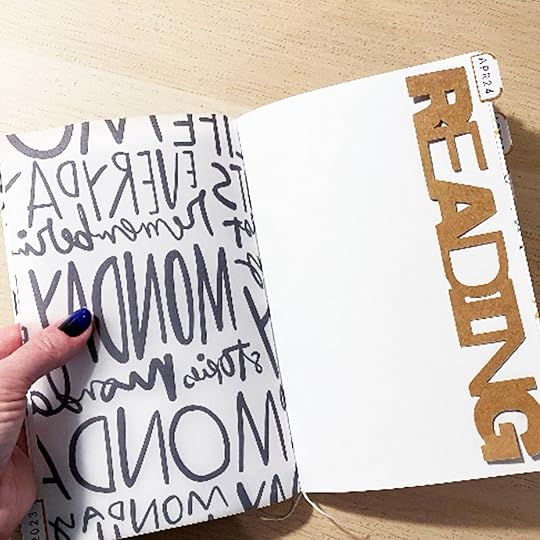 IFE MO
IS EVERYDAY
rememberin
MONDAY
stories Monda
MONDA
AY MONDAY
2023
APR24
READING